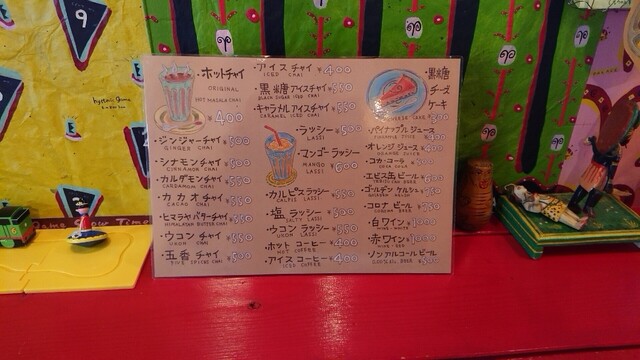 ・ホットチャイ
ORIGINAL
HOT MASALA CHAI
¥400
・ジンジャーチャイ ¥500
GINGER CHAI
・シナモンチャイ ¥500
CINNAMON CHAI
・カルダモンチャイ ¥550
CARDAMON CHAI
・カカオチャイ ¥550
CACAO CHAI
・ヒマラヤバターチャイ ¥550
HIMALAYAN BUTTER CHAI
・ウコンチャイ ¥550
UKON CHAI
・五香チャイ ¥500
FIVE SPICES CHAI
・アイスチャイ ¥400
ICED CHAI
・黒糖アイスチャイ
BLACK SUGAR ICED CHAI
・キャラメルアイスチャイ ¥550
CARAMEL ICED CHAI
・ラッシー ¥500
LASSI
・マンゴーラッシー
MANGO LASSI
¥600
・カルピスラッシー ¥550
CALPIS LASSI
・塩ラッシー ¥500
SALTY LASSI
・ウコンラッシー ¥550
UKON LASSI
・ホットコーヒー ¥400
HOT COFFEE
・アイスコーヒー ¥400
ICED COFFEE
・黒糖
チーズ
ケーキ
・パイナップルジュース
PINEAPPLE JUICE
・オレンジジュース
ORANGE JUICE
・コカ・コーラ
COCA COLA
・エビス缶ビール
・ゴールデンケルシュ
・コロナビール
CORONA BEER
・白ワイン
WINE WHITE
・赤ワイン
WINE RED
・ノンアルコールビール
9